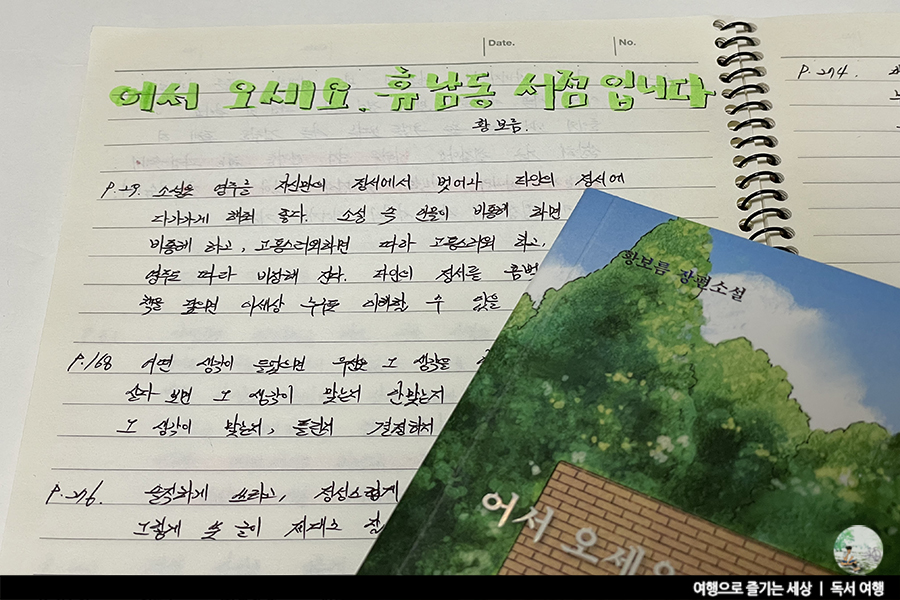 Date.
No.
어서 오세요, 휴남동 서점입니다
황보름.
P.29. 소설은 영주를 자신만의 정서에서 벗어나 타인의 정서에
다가가게 해줘 좋다. 소설 속 인물이 비통해 하면
비통해 하고, 고통스러워하면 따라 고통스러워 하고,
영주도 따라 비장해 진다. 타인의 정서를 흠뻑
책을 덮으면 이세상 누구도 이해할 수 있을
P.168 어떤 생각이 들었으면 우선은 그 생각을
살다 보면 그 생각이 맞는지 안맞는지
그 생각이 맞는지, 틀린지 결정하지
P.276. 솔직하게 쓰라고, 정성스럽게
그렇게 쓴 글이 제대로 잘
P.294.
황보름 장편소설
어서 오세요
여행으로 즐기는 세상 | 독서 여행